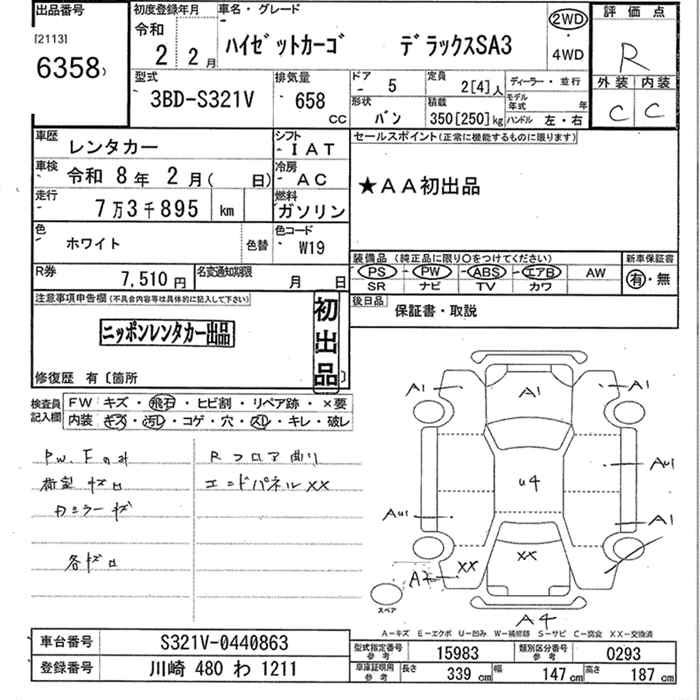 出品番号
[2113]
6358
初度登録年月
令和
2 2月
車名・グレード
ハイゼットカーゴ デラックスSA3
2WD
・
4WD
評価点
R
外装 内装
C C
型式
3BD-S321V
排気量
658
CC
ドア
5
定員
2[4]人
ディーラー・並行
形状
バン
積載
350[250]kg
モデル年式 年
ハンドル 左・右
車歴
レンタカー
シフト
IAT
セールスポイント(正常に機能するものに限ります)
★AA初出品
車検
令和 8年 2月( 日)
冷房
AC
走行
7万3千895 km
燃料
ガソリン
色
ホワイト
色替
色コード
W19
装備品(純正品に限り○をつけてください)
PS PW ABS エアB AW
SR ナビ TV カワ
新車保証書
有・無
R券
7,510円
名変通知期限
月 日
後日品
保証書・取説
注意事項申告欄(不具合内容等は具体的に記入して下さい)
ニッポンレンタカー出品
初出品
修復歴 有〔箇所
検査員記入欄
FW キズ・飛石・ヒビ割・リペア跡・×要
内装 キズ・汚レ・コゲ・穴・スレ・キレ・破レ
PW.Fのみ
荷室キズ凹
カミラーキズ
各キズ凹
Rフロア曲り
エンドパネルXX
A1 A1 A1
U4
AU1
AU1
A1
XX XX
A2
A4
スペア
A-キズ E-エクボ U-凹み W-補修跡 S-サビ C-腐食 XX-交換済
車台番号
S321V-0440863
登録番号
川崎 480 わ 1211
型式指定番号 参考
15983
類別区分番号 参考
0293
車庫証明用 参考
長さ 339 cm
幅 147 cm
高さ 187 cm